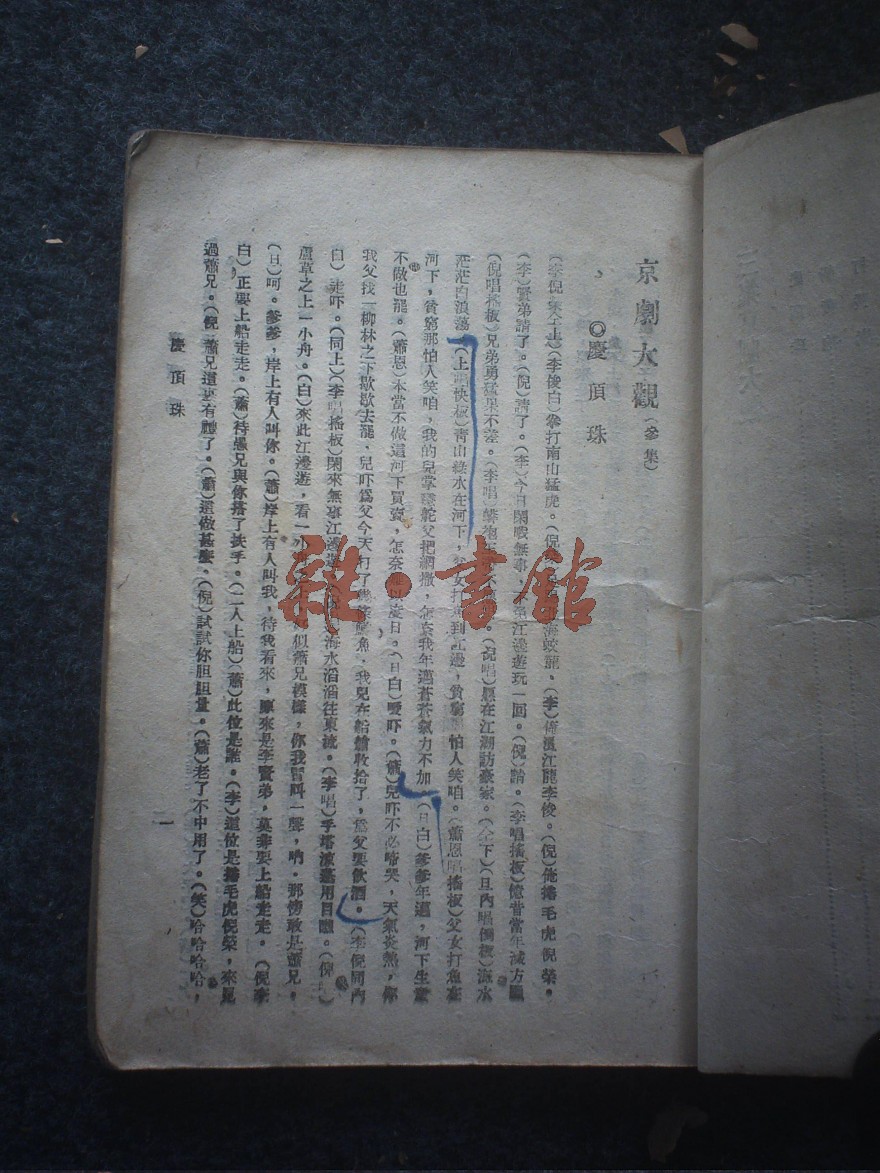 京劇大觀（參集）
◎慶頂珠
（李倪仝上）（李俊白）拳打南山猛虎。（倪　海蛟龍。（李）俺混江龍李俊。（倪）俺捲毛虎倪榮。
（李）賢弟請了。（倪）請了。（李）今日閑暇無事，　江邊遊玩一回。（倪）請。（李唱搖板）憶昔當年　方　
（倪唱搖板）兄弟勇猛果不差。（李唱　（倪唱）愿在江湖訪豪家。（仝下）（旦內唱倒板）海水
茫茫白浪　。（上唱快板）青山綠水在河下，父女打　到江邊，貧窮　怕人笑咱。（蕭恩唱搖板）父女打魚在
河下，貧窮那怕人笑咱，我的兒掌　舵父把網撒，怎奈我年邁蒼蒼氣力不加。（旦白）爹爹年邁，河下生意
不做也罷。（蕭恩）本當不做這河下買賣，怎奈難以度日。（旦白）噯吓。（蕭）兒吓不必啼哭，天氣炎熱，你
我父找一柳林之下歇歇去罷，兒吓爲父今天打了幾條鮮魚，我兒在船艙收拾了，爲父要飲酒。（李倪同內
白）走吓。（同上）（李唱搖板）閑來無事江邊遊，（倪　海水滔滔往東流。（李唱）手搭涼蓬用目瞧。（倪
蘆草之上一小舟。（白）來此江邊遊，看一小　似蕭兄模樣，你我冒叫一聲，吶。那傍敢是蕭兄。
（旦）呵。爹爹，岸上有人叫你。（蕭）岸上有人叫我，待我看來，原來是李賢弟，莫非要上船走走。（倪李
白）正要上船走走。（蕭）待愚兄與你搭了扶手。（二人上船）（蕭）此位是誰。（李）這位是捲毛虎倪榮，來見
過蕭兄。（倪）蕭兄這裏有禮了。（蕭）這做甚麼。（倪）試試你胆胆量。（蕭）老了不中用了。（笑）哈哈哈哈，
慶頂珠
一
雜·書館